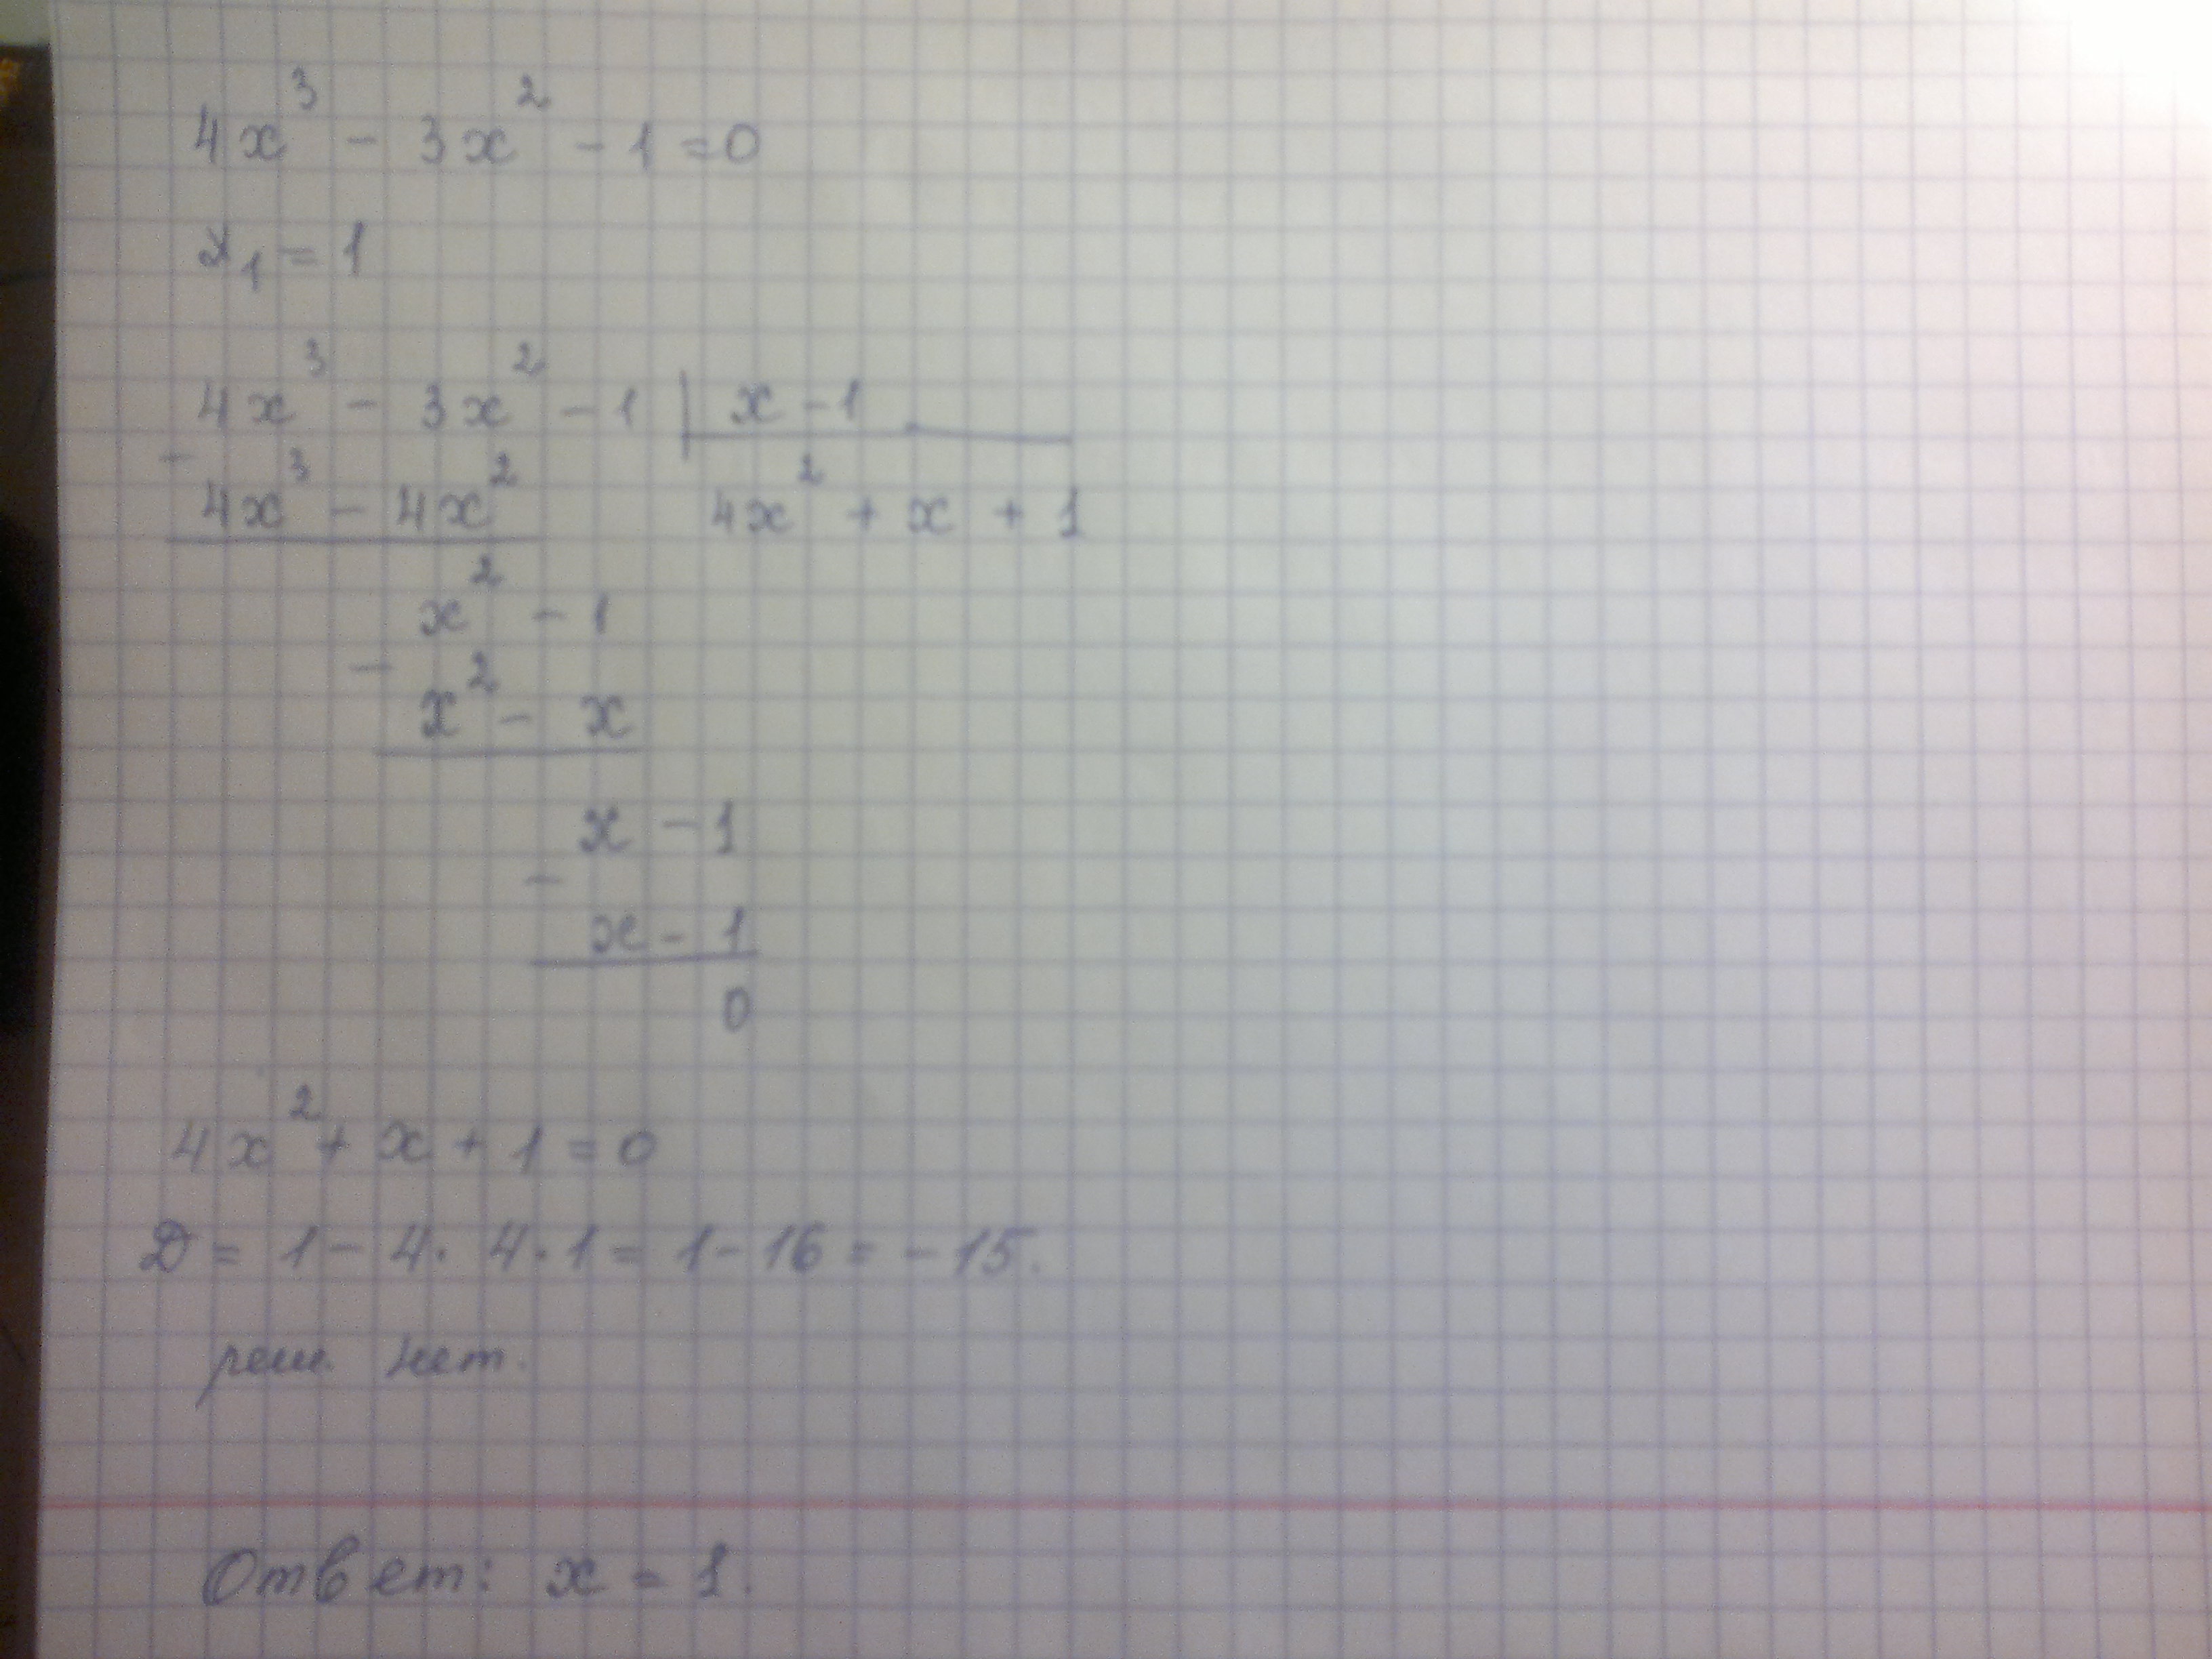 4x³ - 3x² - 1 = 0
x₁ = 1
4x³ - 3x² - 1 | x - 1
- 4x³ - 4x² 4x² + x + 1
x² - 1
- x² - x
x - 1
- x - 1
0
4x² + x + 1 = 0
D = 1 - 4 · 4 · 1 = 1 - 16 = -15.
реш. нет.
Ответ: x = 1.